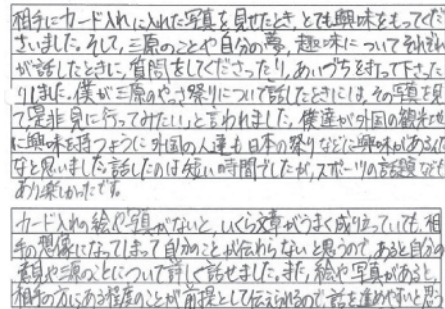 相手にカード入れに入れた写真を見せたとき、とても興味をもってくだ
さいました。そして、三原のことや自分の夢、趣味についてそれぞれ
が話したときに、質問をしてくださったり、あいづちを打って下さった
りしました。僕が三原のやっさ祭りについて話したときには、その写真を見
て「是非見に行ってみたい」と言われました。僕達が外国の観光地
に興味を持つように外国の人達も日本の祭りなどに興味があるんだ
なと思いました。話したのは短い時間でしたが、スポーツの話題などで
あり楽しかったです。
カード入れの絵や写真がないと、いくら文章がうまく成り立っていても、相
手の想像になってしまって自分のことが伝わらないと思うので、あると自分の
趣味や三原のことについて詳しく話せました。また、絵や写真があると、
相手の方にある程度のことが前提として伝えられるので、話を進めやすいと思